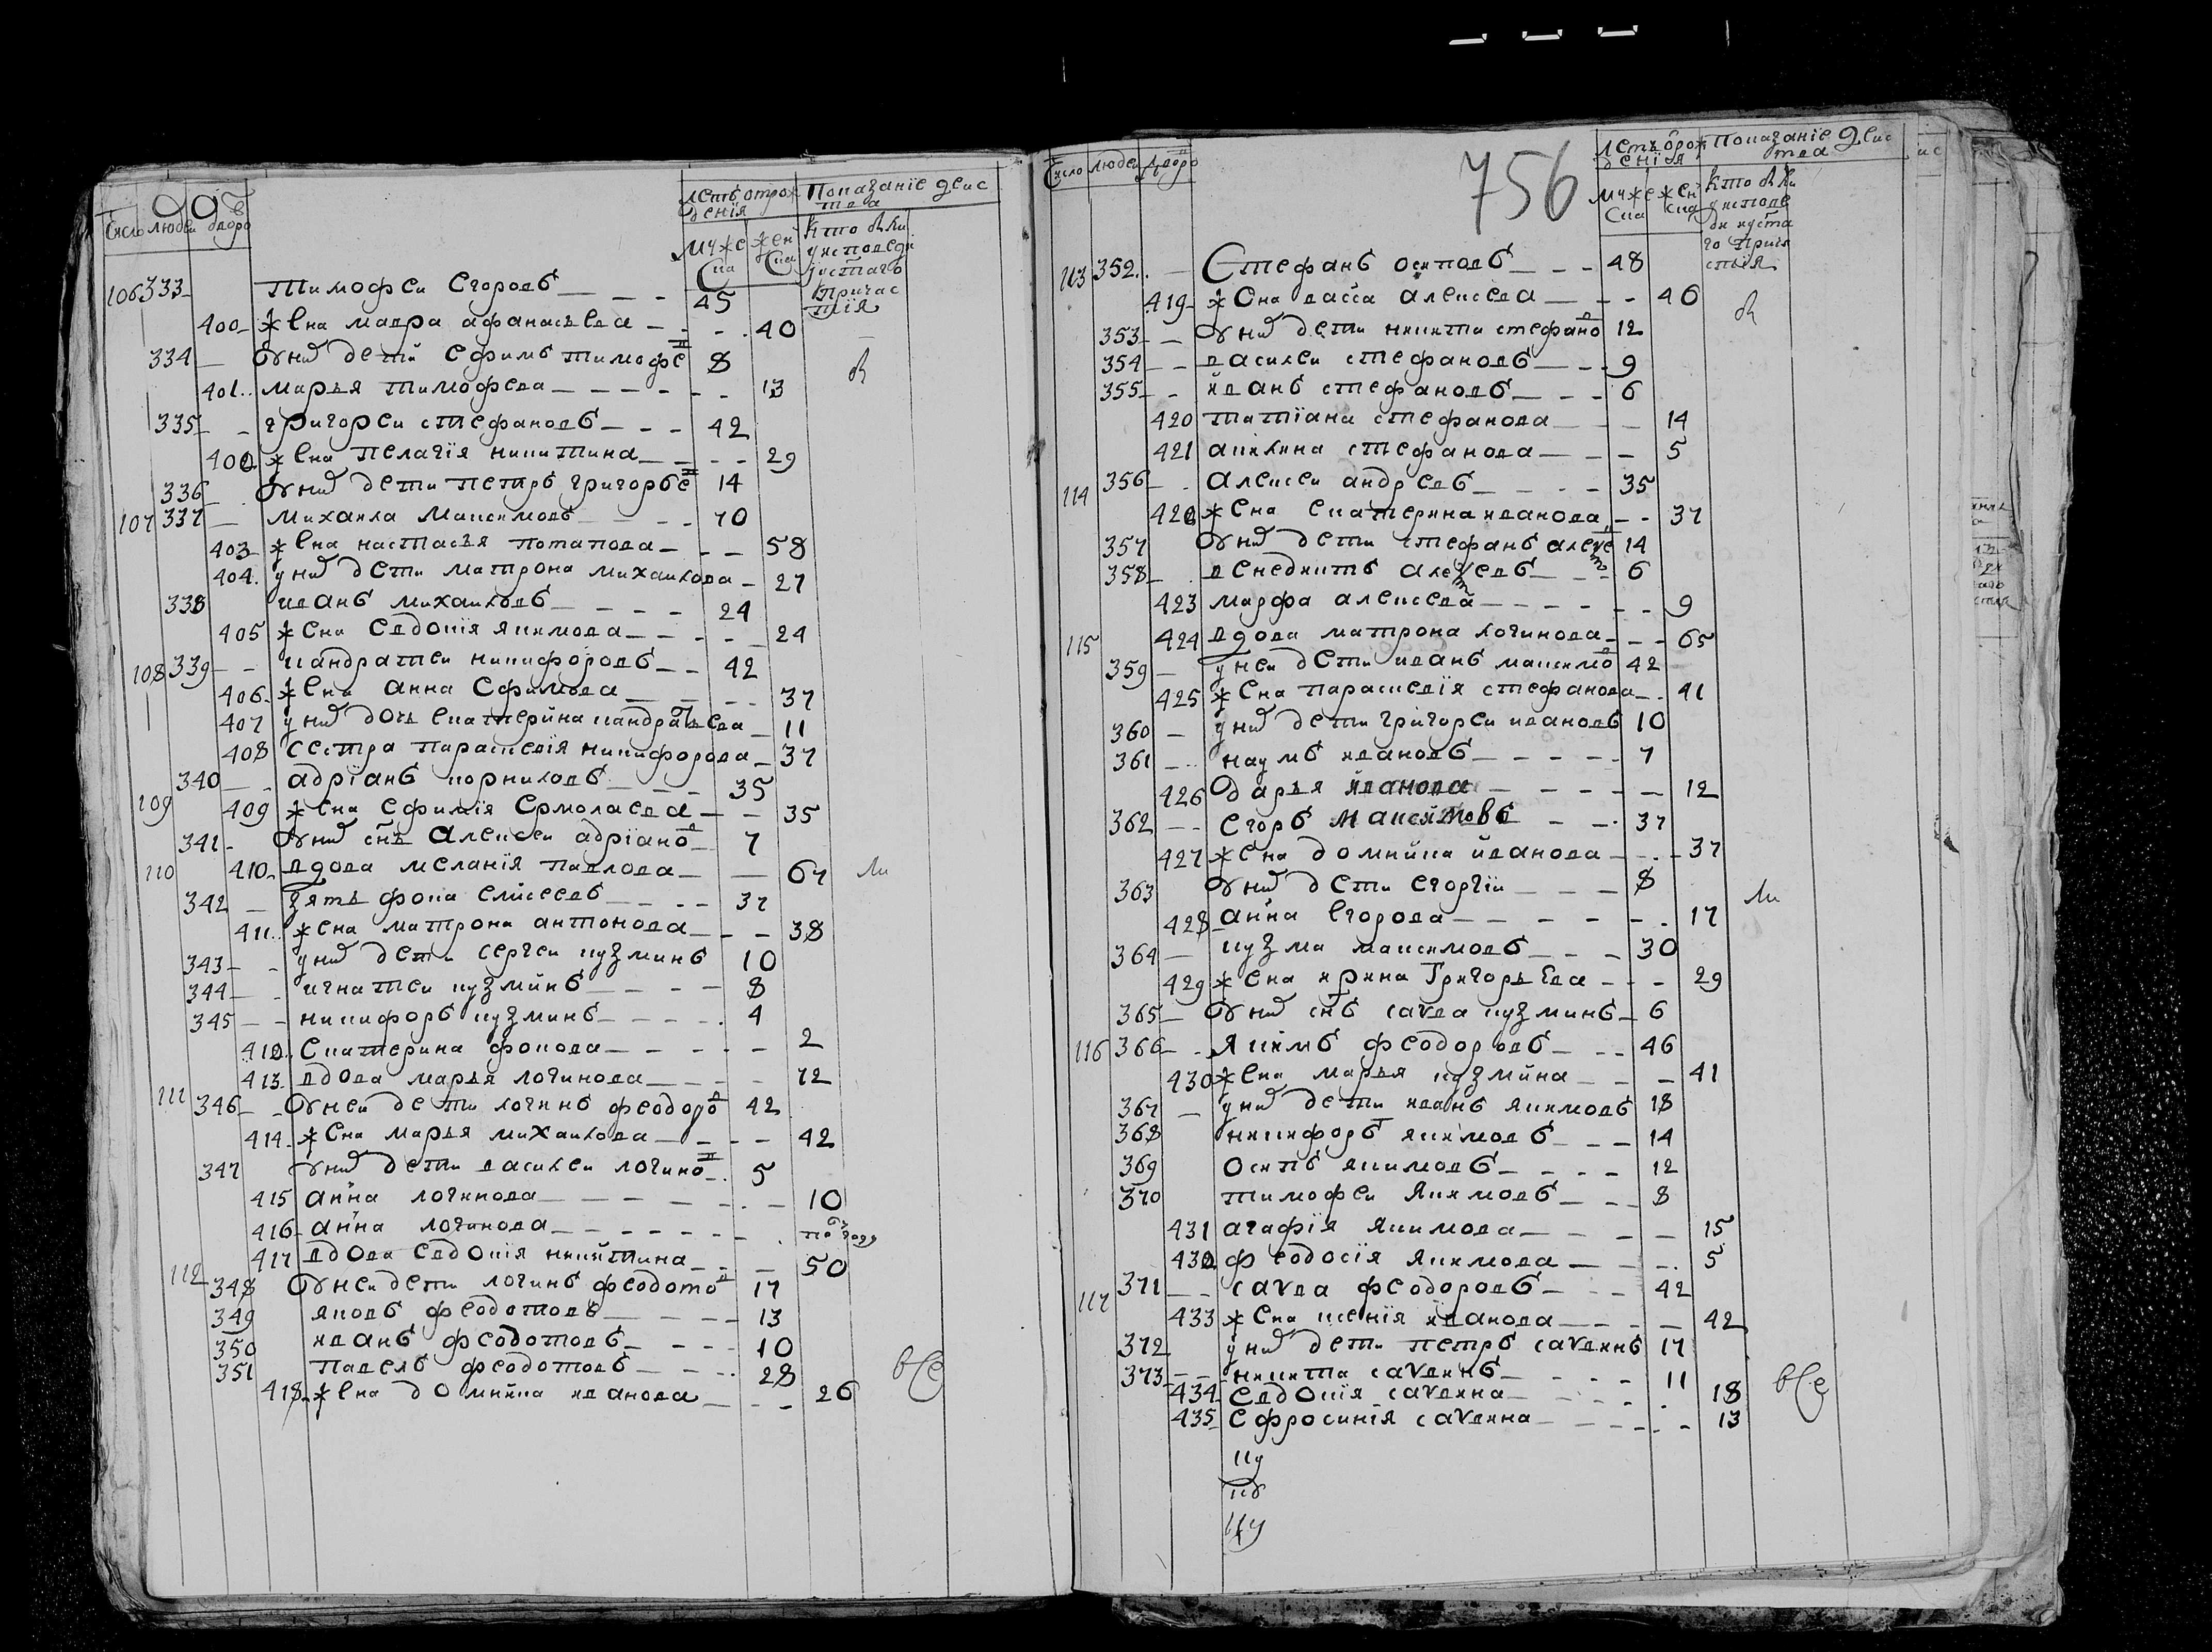 Число людей дворо
летъ от рождения
Показание действа
мужеска
женска
кто были у исповеди и святаго причастия
106 333 Тимофеи Егоровъ 45
400 жена мавра афанасьева 40
334 У них дети Ефимъ тимофеев 8
401 марья тимофеева 13
335 григореи стефановъ 42
402 жена пелагїя никитина 29
336 У них дети петръ григорьев 14
107 337 михаила максимовъ 70
403 жена настасья потапова 58
404 у них дети матрона михаилова 27
338 иванъ михаиловъ 24
405 жена евдокїя якимова 24
108 339 кандратеи никифоровъ 42
406 жена анна ефимова 37
407 у них дочь екатерина кандратьева 11
408 сестра параскевїя никифорова 37
109 340 адрїанъ корниловъ 35
409 жена ефимїя ермолаева 35
341 У них снъ алексеи адрїанов 7
110 410 вдова меланїя павлова 67
342 зять фока елисеевъ 37
411 жена матрона антонова 38
343 у них дети сергеи кузминъ 10
344 игнатеи кузминъ 8
345 никифоръ кузминъ 4
412 Екатерина фокова 2
111 413 вдова марья логинова 72
346 У неи дети логинъ феодоров 42
414 жена марья михаилова 42
347 У них дети василеи логинов 5
415 анна логинова 10
416 анна логинова по году
112 417 вдова евдокїя никитина 50
348 У неи дети логинъ феодотов 17
349 яковъ феодотовъ 13
350 иванъ феодотовъ 10
351 павелъ феодотовъ 28
418 жена домника иванова 26
бы
ли
все
756
Число людей дворо
летъ от рождения
Показание действа
мужеска
женска
кто были у исповеди и святаго причастия
113 352 Стефанъ осиповъ 48
419 жена васса алексеева 46
353 У них дети никита стефанов 12
354 василеи стефановъ 9
355 иванъ стефановъ 6
420 татїана стефанова 14
421 акилина стефанова 5
114 356 алексеи андреевъ 35
422 жена екатерина иванова 37
357 У них дети стефанъ алексеев 14
358 венедиктъ алексеевъ 6
423 марфа алексеева 9
115 424 вдова матрона логинова 65
359 у неи дети иванъ максимов 42
425 жена параскевїя стефанова 41
360 у них дети григореи ивановъ 10
361 наумъ ивановъ 7
426 дарья иванова 12
362 егоръ максимовъ 37
427 жена домника иванова 37
363 У них дети георгїи 8
428 анна егорова 17
364 кузма максимовъ 30
429 жена ирина Григорьева 29
365 У них снъ савва кузминъ 6
116 366 якимъ феодоровъ 46
430 жена марья кузмина 41
367 у них дети иванъ якимовъ 18
368 никифоръ якимовъ 14
369 осипъ якимовъ 12
370 тимофеи якимовъ 8
431 агафїя якимова 15
432 феодосїя якимова 5
117 371 савва феодоровъ 42
433 жена ксенїя иванова 42
372 у них дети петръ саввинъ 17
373 никита саввинъ 11
434 евдокїя саввина 18
435 ефросинїя саввина 13
бы
ли
все